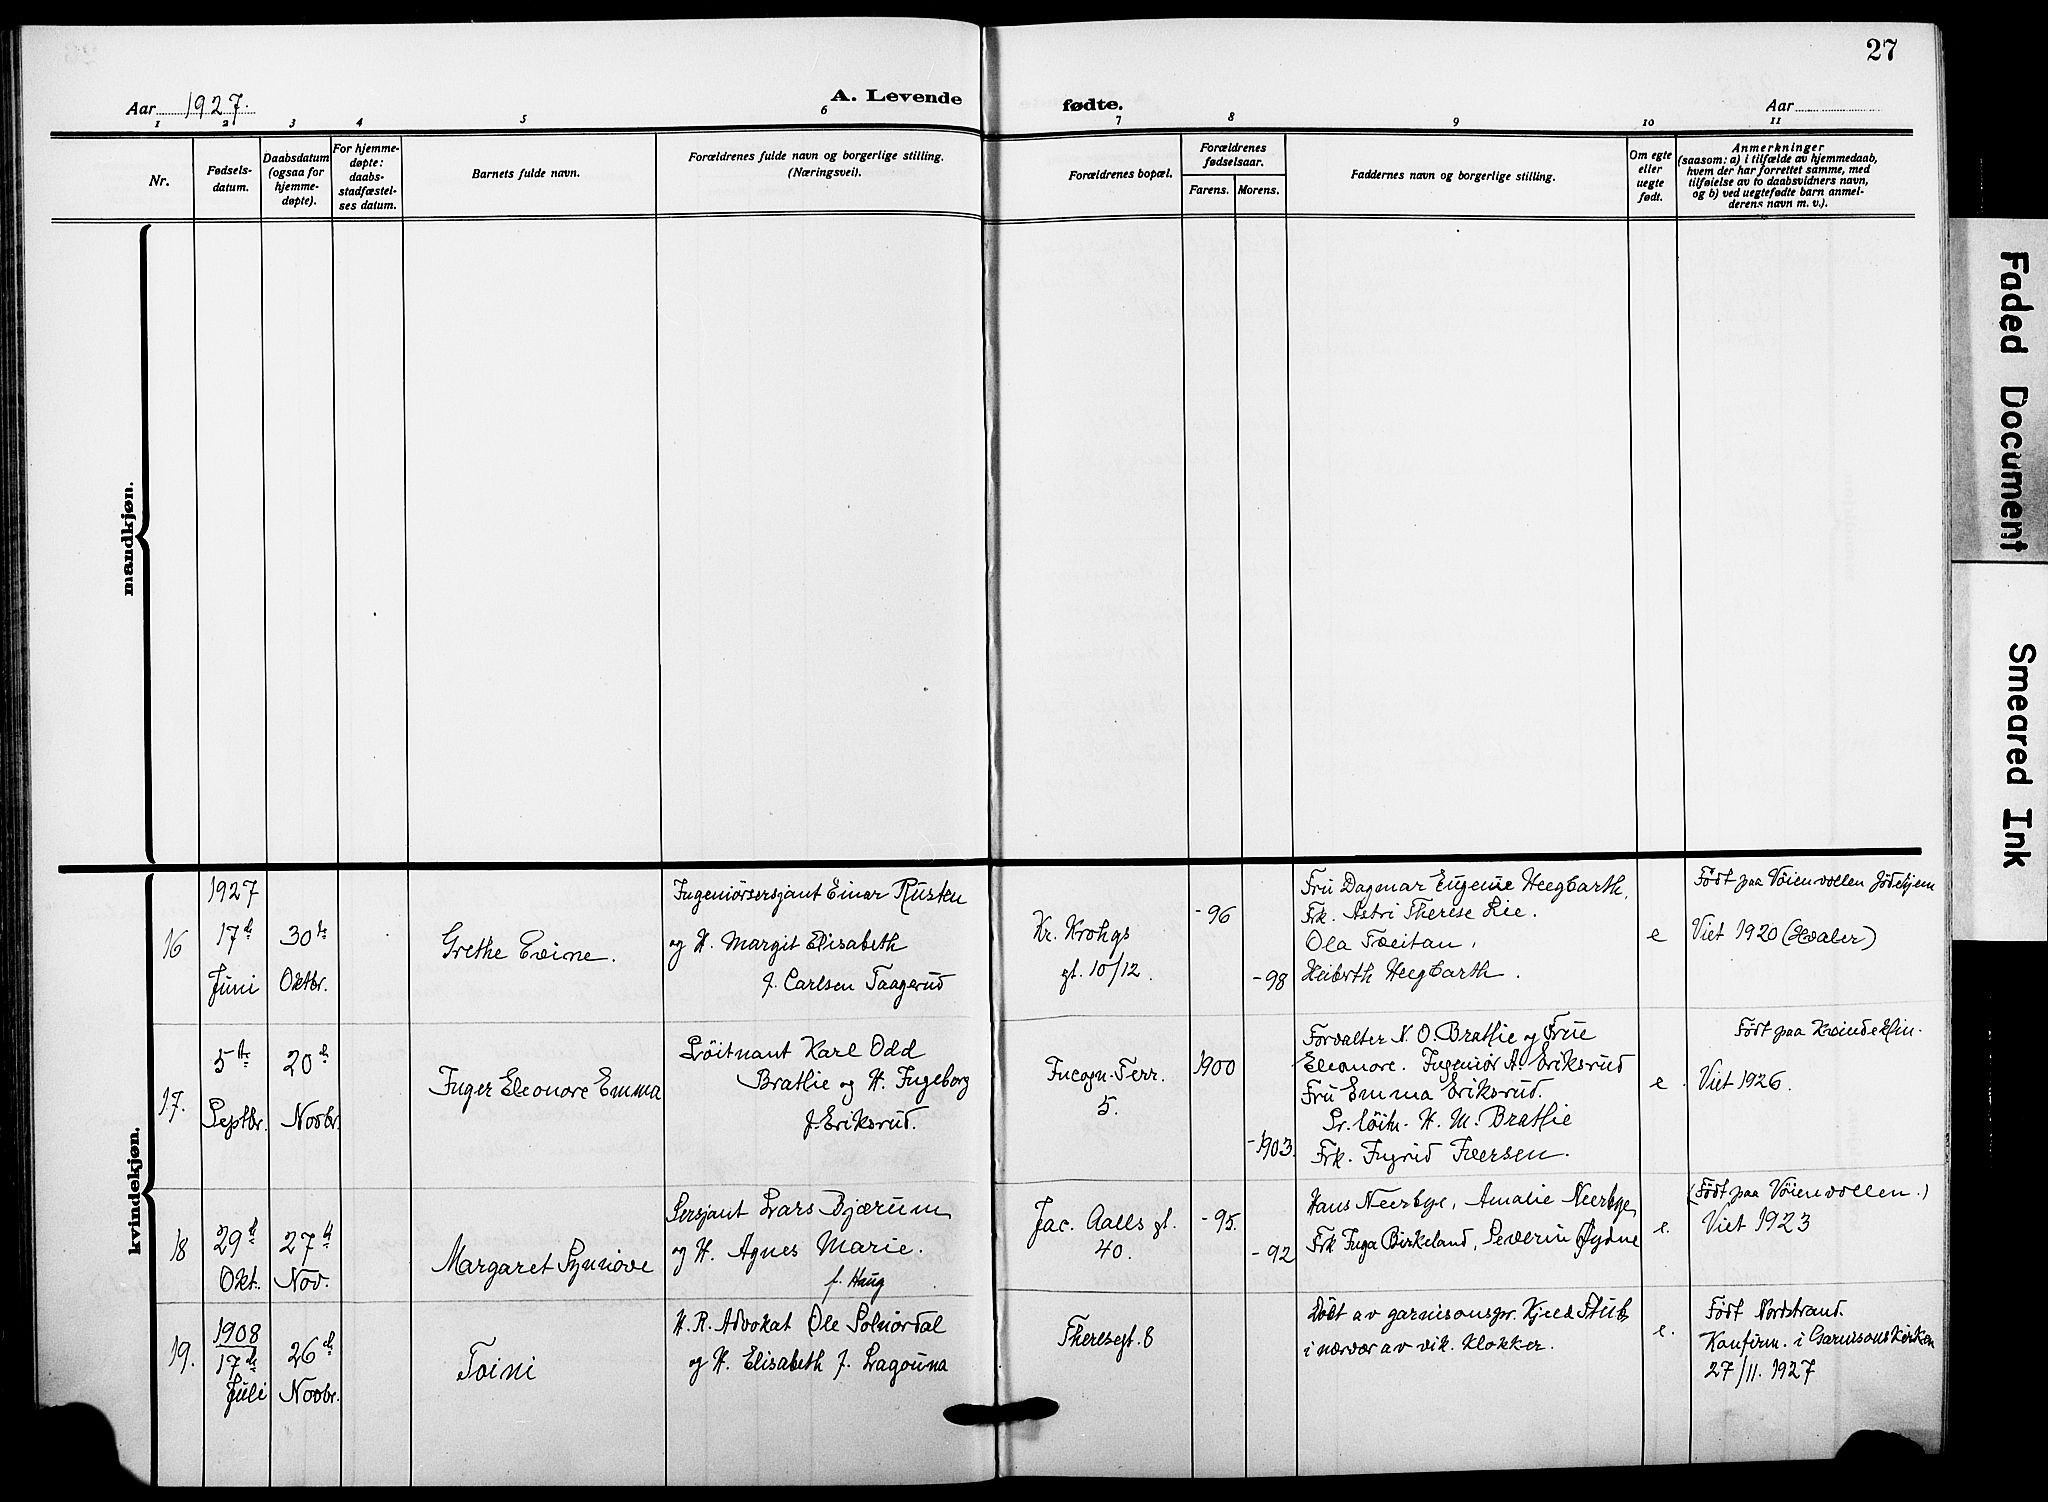 27
Aar 1927.
A. Levende
fødte.
Aar
1
2
3
4
5
6
7
8
9
10
11
Nr.
Fødsels-
datum.
Daabsdatum
(ogsaa for
hjemme-
døpte).
For hjemme-
døpte:
daabs-
stadfæstel-
ses datum.
Barnets fulde navn.
Forældrenes fulde navn og borgerlige stilling.
(Næringsvei).
Forældrenes bopæl.
Forældrenes
fødselsaar.
Farens.
Morens.
Faddernes navn og borgerlige stilling.
Om egte
eller
uegte
født.
Anmerkninger
(saasom: a) i tilfælde av hjemmedaab,
hvem der har forrettet samme, med
tilføielse av to daabsvidners navn,
og b) ved uegtefødte barn anmel-
derens navn m. v.).
mandkjøn.
kvindekjøn.
16
1927
17de
Juni
30te
Oktbr.
Grethe Evine.
Ingeniørsersjant Einar Rusten
og H. Margit Elisabeth
f. Carlsen Taagerud
Kr. Krohgs
gt. 10/12.
-96
-98
Fru Dagmar Eugenie Heegbarth,
Frk. Astri Therese Lie.
Ola Tveitan,
Heegbarth.
e
Født paa Vøienvollen fødehjem
Viet 1920 (Hvaler)
17.
5te
Septbr.
20de
Novbr.
Inger Eleonore Emma
Løitnant Karl Odd
Bratlie og H. Ingeborg
f. Eriksrud.
Incogn. Terr.
5.
1900
-1903.
Forvalter N. O. Bratlie og Frue
Eleonore. Ingeniør A. Eriksrud
Fru Emma Eriksrud.
Pr. løitn. H. M. Bratlie
Frk. Ingrid Iversen.
e.
Født paa Kvindeklin.
Viet 1926.
18
29de
Okt.
27de
Nov.
Margaret Synnøve
Sersjant Lars Bjærum
og H. Agnes Marie.
f. Haug
Jac. Aalls gt.
40.
-95.
-92
Hans Neerbye, Amalie Neerbye
Frk Inga Birkeland, Severin Øydne
e.
(Født paa Vøienvollen.)
Viet 1923
19.
1908
17de
Juli
26de
Novbr.
Toini
H. R. Advokat Ole Solnørdal
og H. Elisabeth f. Lagouna
Theresegt. 8
Døbt av garnisonspr. Kjeld Stub
i nærvær av vik. klokker.
e.
Født Nordstrand.
Konfirm. i Garnisonskirken
27/11. 1927
Faded Document
Smeared Ink